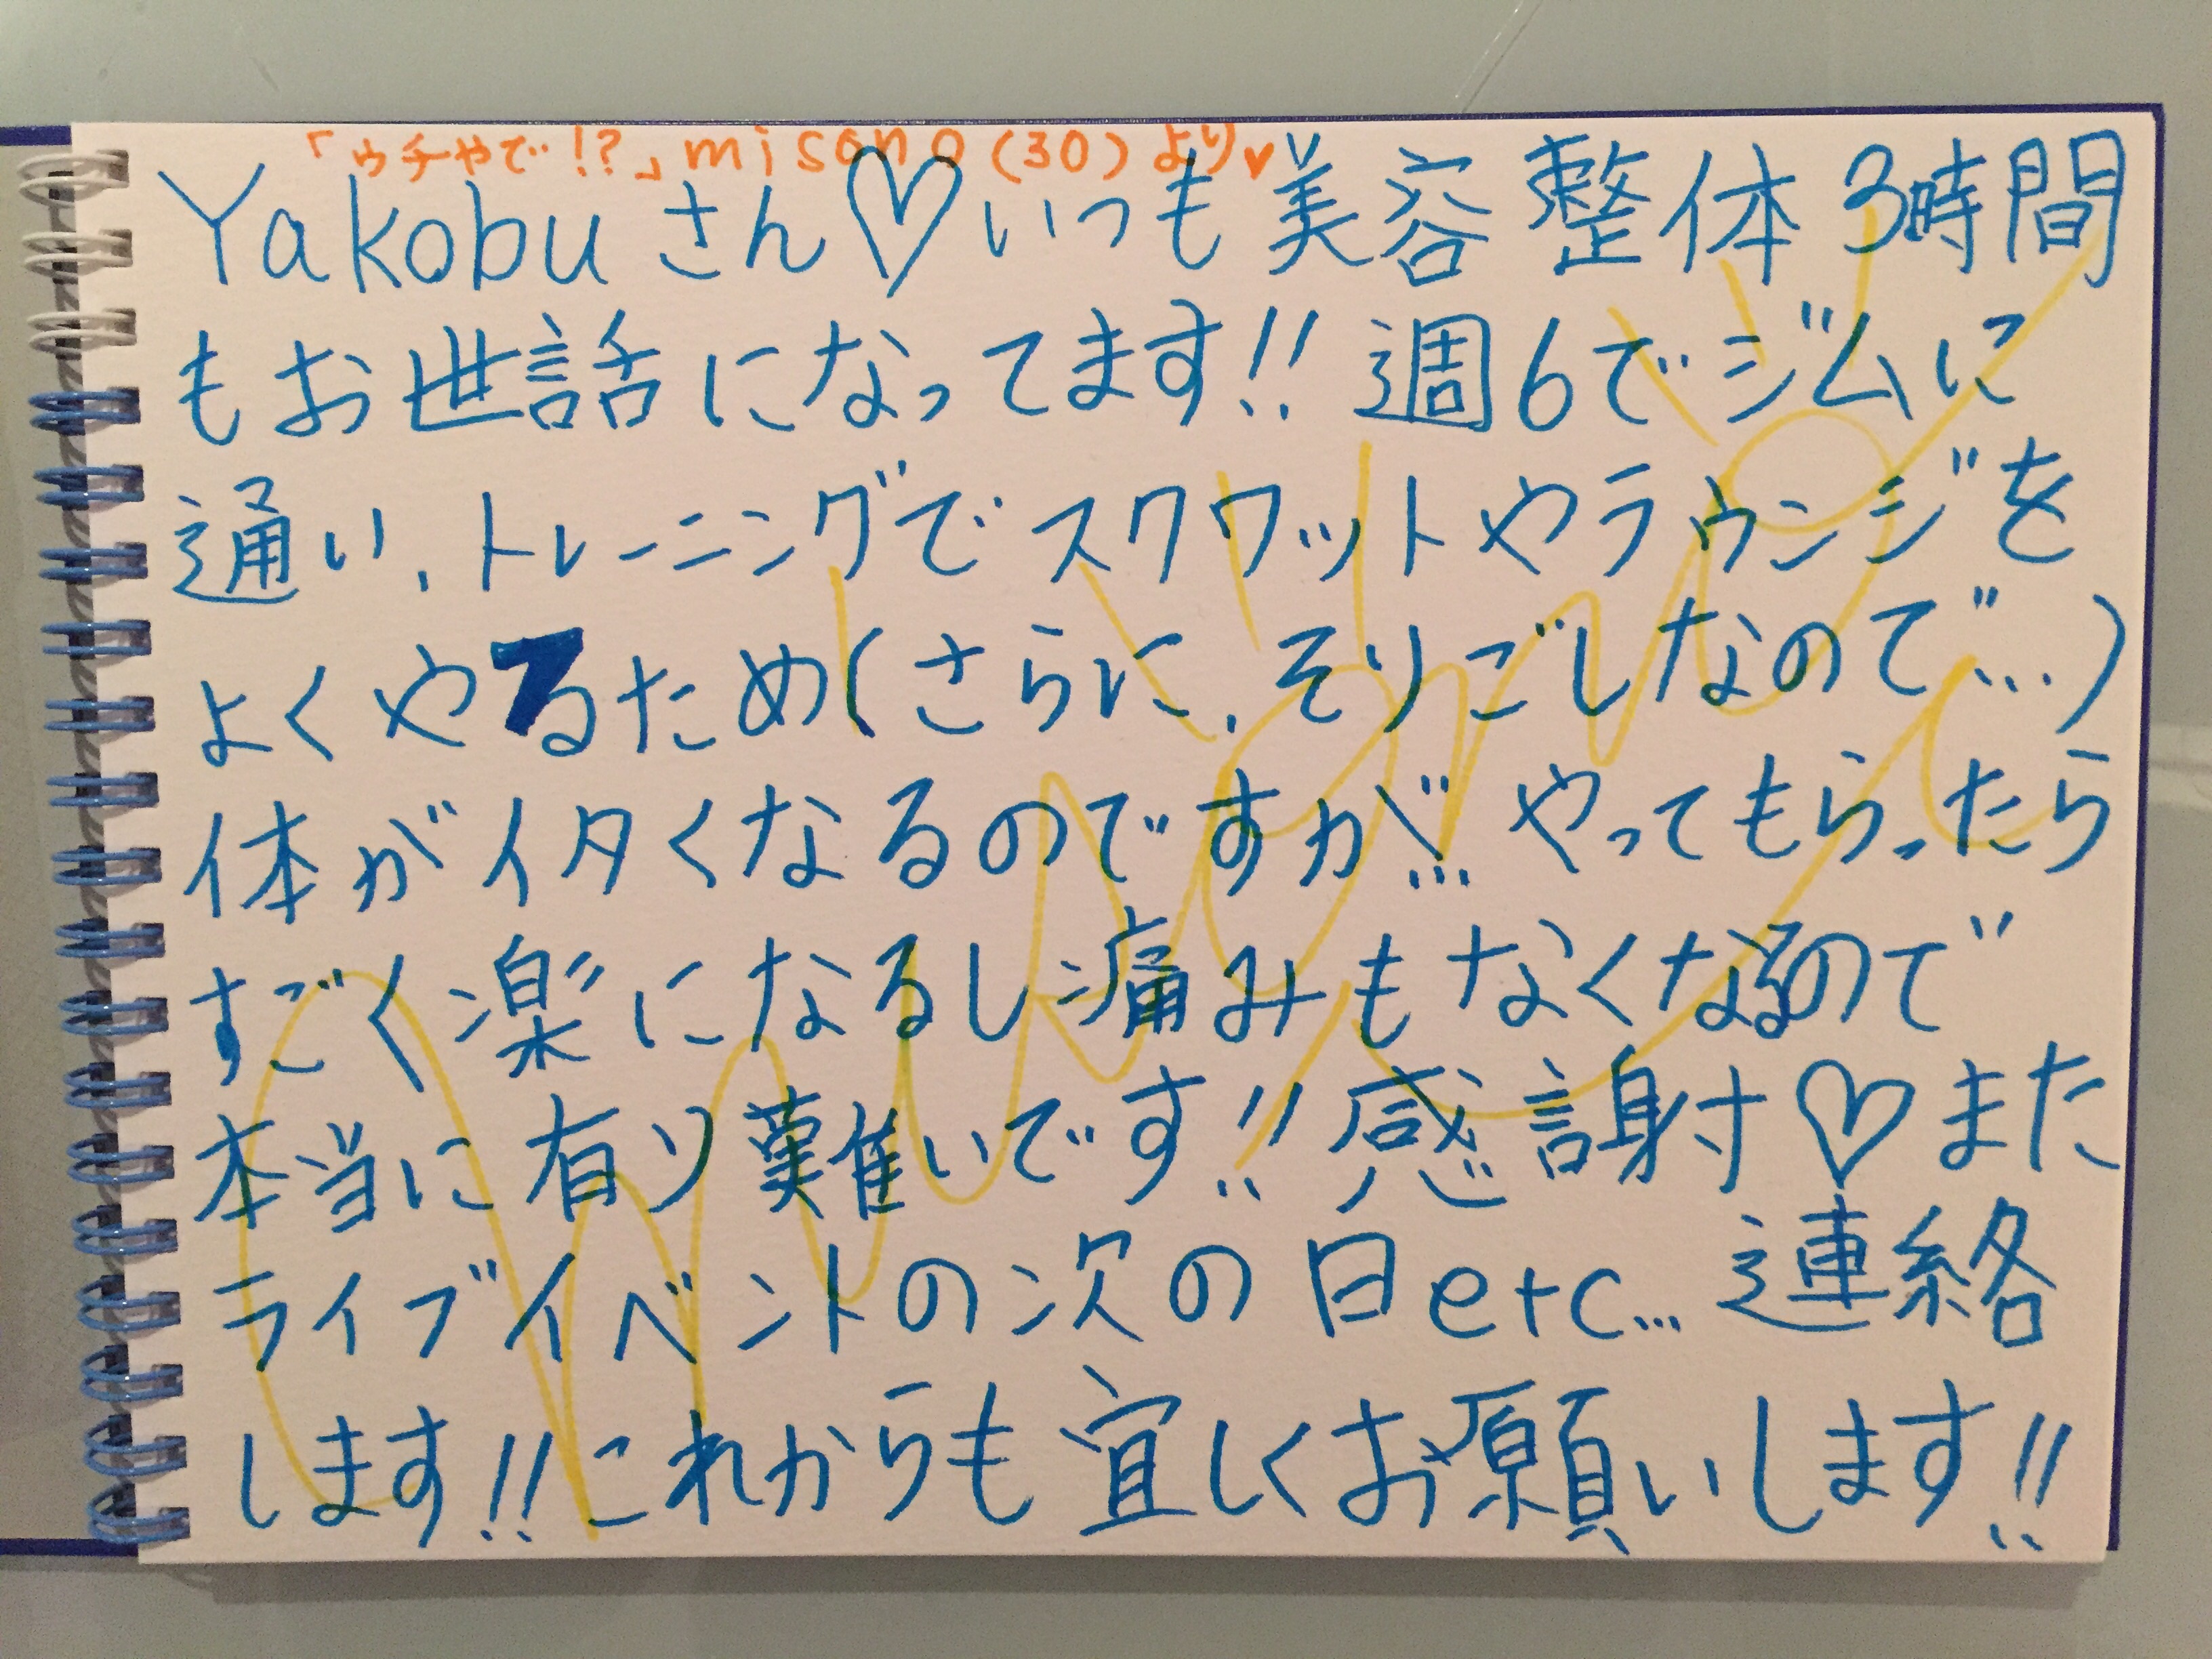 「ウチやで!?」misono(30)より♥
Yakobuさん♡いつも美容整体3時間
もお世話になってます!!週6でジムに
通い、トレーニングでスクワットやラウンジを
よくやるため(さらに、そりごしなので…)
体がイタくなるのですが…やってもらったら
すごく楽になるし痛みもなくなるので
本当に有り難いです!!感謝♡また
ライブイベントの次の日etc…連絡
します!!これからも宜しくお願いします!!